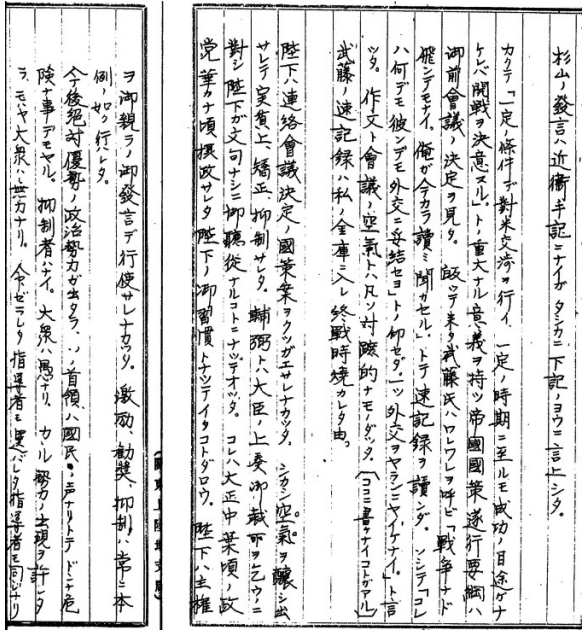 杉山ノ發言ハ近衛手記ニナイガ タシカニ下記ノヨウニ言上シタ。
カクテ「一定ノ條件デ對米交渉ヲ行イ 一定ノ時期ニ至ルモ成功ノ目途ガナ
ケレバ開戰ヲ決意スル」トノ重大ナル意義ヲ持ツ帝國國策遂行要綱ハ
御前會議ノ決定ヲ見タ。 皈ッテ来タ武藤氏ハワレワレヲ呼ビ「戰争ナド
飛ンデモナイ。俺ガ今カラ讀ミ聞カセル」トテ速記録ヲ讀ンダ。 ソシテ「コレ
ハ何デモ彼ンデモ外交ニ妥結セヨ」トノ仰セダ。一ツ外交ヲヤランニャイケナイ。ト言
ッタ。 作文ト會議ノ空氣トハ凡ソ対蹠的ナモノダッタ。(ココニ書ケナイコトガアル)
武藤ノ速記録ハ私ノ金庫ニ入レ終戰時焼カレタ由。
陛下ハ連絡會議決定ノ國策案ヲクツガエサレナカッタ。 シカシ空氣ヲ醸シ出
サレテ実質上、矯正 抑制サレタ。 輔弼トハ大臣ノ上奏御裁可ヲ乞ウニ
對シ陛下ガ文句ナシニ御聽從ナルコトニナッテオッタ。 コレハ大正中葉頃ノ政
党華カナ頃摂政サレタ陛下ノ御習慣トナッテイタコトダロウ。 陛下ハ主権
ヲ御親ラノ御發言デ行使サレナカッタ。 激励、勧奨、抑制ハ常ニ本
例ノ如ク行レタ。
今後絶対優勢ノ政治勢力ガ出タラ、ソノ首領ハ國民ノ声ナリトテドンナ危
険ナ事デモヤル。 抑制者ハナイ。 大衆ハ愚ナリ。 カカル勢力ノ出現ヲ許シタ
ラ、モハヤ大衆ハ無力ナリ。 命ゼラレタ指導者モ選バレタ指導者モ同ジナリ